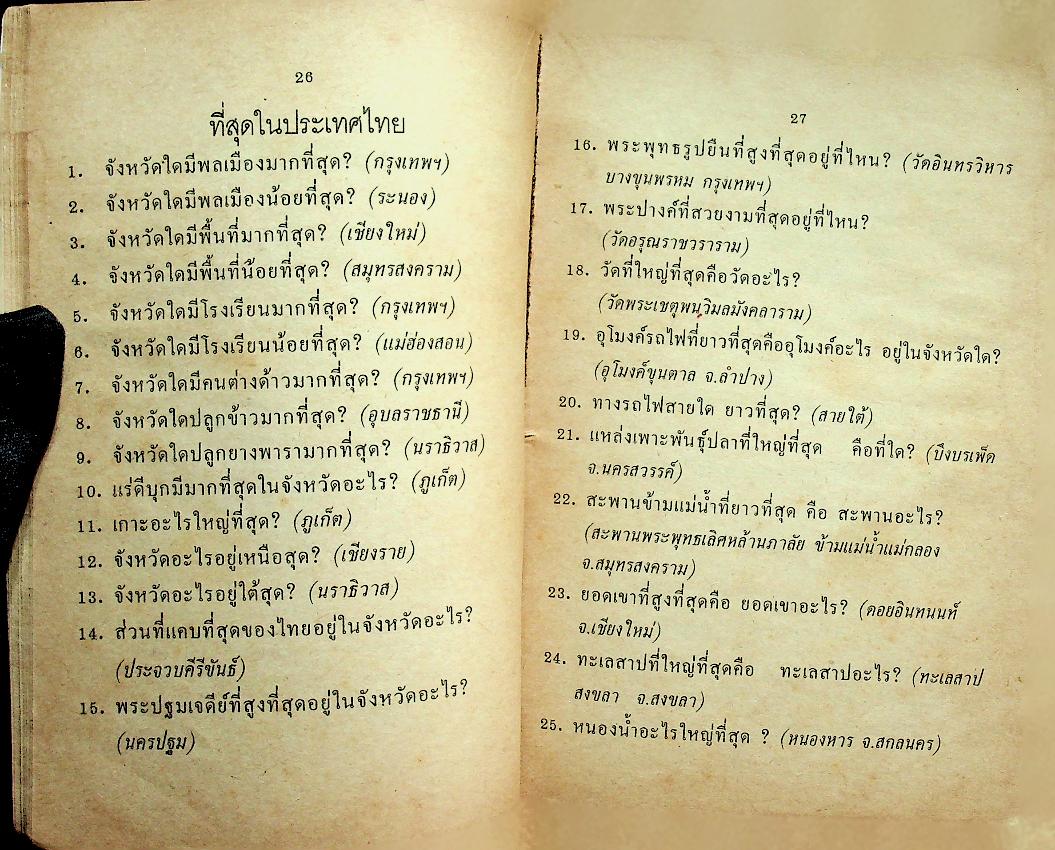 26
ที่สุดในประเทศไทย
1. จังหวัดใดมีพลเมืองมากที่สุด? (กรุงเทพฯ)
2. จังหวัดใดมีพลเมืองน้อยที่สุด? (ระนอง)
3. จังหวัดใดมีพื้นที่มากที่สุด? (เชียงใหม่)
4. จังหวัดใดมีพื้นที่น้อยที่สุด? (สมุทรสงคราม)
5. จังหวัดใดมีโรงเรียนมากที่สุด? (กรุงเทพฯ)
6. จังหวัดใดมีโรงเรียนน้อยที่สุด? (แม่ฮ่องสอน)
7. จังหวัดใดมีคนต่างด้าวมากที่สุด? (กรุงเทพฯ)
8. จังหวัดใดปลูกข้าวมากที่สุด? (อุบลราชธานี)
9. จังหวัดใดปลูกยางพารามากที่สุด? (นราธิวาส)
10. แร่ดีบุกมีมากที่สุดในจังหวัดอะไร? (ภูเก็ต)
11. เกาะอะไรใหญ่ที่สุด? (ภูเก็ต)
12. จังหวัดอะไรอยู่เหนือสุด? (เชียงราย)
13. จังหวัดอะไรอยู่ใต้สุด? (นราธิวาส)
14. ส่วนที่แคบที่สุดของไทยอยู่ในจังหวัดอะไร?
(ประจวบคีรีขันธ์)
15. พระปฐมเจดีย์ที่สูงที่สุดอยู่ในจังหวัดอะไร?
(นครปฐม)
27
16. พระพุทธรูปยืนที่สูงที่สุดอยู่ที่ไหน? (วัดอินทรวิหาร
บางขุนพรหม กรุงเทพฯ)
17. พระปางค์ที่สวยงามที่สุดอยู่ที่ไหน?
(วัดอรุณราชวราราม)
18. วัดที่ใหญ่ที่สุดคือวัดอะไร?
(วัดพระเชตุพนวิมลมังคลาราม)
19. อุโมงค์รถไฟที่ยาวที่สุดคืออุโมงค์อะไร อยู่ในจังหวัดใด?
(อุโมงค์ขุนตาล จ.ลำปาง)
20. ทางรถไฟสายใด ยาวที่สุด? (สายใต้)
21. แหล่งเพาะพันธุ์ปลาที่ใหญ่ที่สุด คือที่ใด? (บึงบรเพ็ด
จ.นครสวรรค์)
22. สะพานข้ามแม่น้ำที่ยาวที่สุด คือ สะพานอะไร?
(สะพานพระพุทธเลิศหล้านภาลัย ข้ามแม่น้ำแม่กลอง
จ.สมุทรสงคราม)
23. ยอดเขาที่สูงที่สุดคือ ยอดเขาอะไร? (ดอยอินทนนท์
จ.เชียงใหม่)
24. ทะเลสาปที่ใหญ่ที่สุดคือ ทะเลสาปอะไร? (ทะเลสาป
สงขลา จ.สงขลา)
25. หนองน้ำอะไรใหญ่ที่สุด ? (หนองหาร จ.สกลนคร)